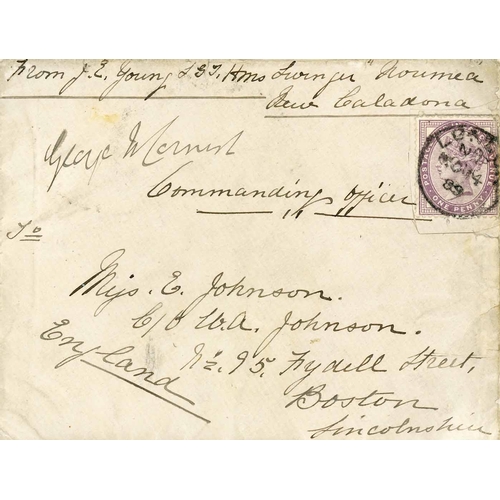 From J. E. Young L.S.T, Hms Swinger "Noumea"
New Caladona
Commanding Officer
To
Miss. E. Johnson.
C/o W.A. Johnson.
No. 95. Fydell Street,
Boston
Lincolnshire
England
POSTAGE
ONE PENNY
LONDON
89